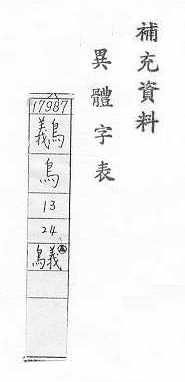 補充資料
異體字表
17987
鸃
鳥
13
24
鳥義